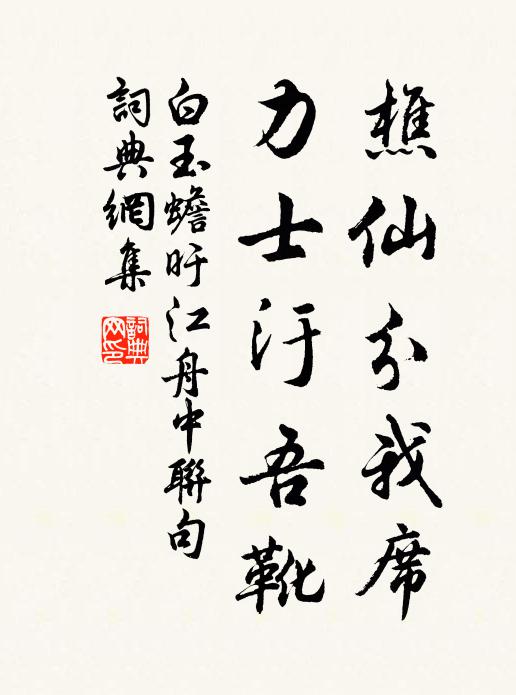 樵仙分我席
力士汙吾靴
白玉蟾旴江舟中聯句
詞典網集
詞典網印